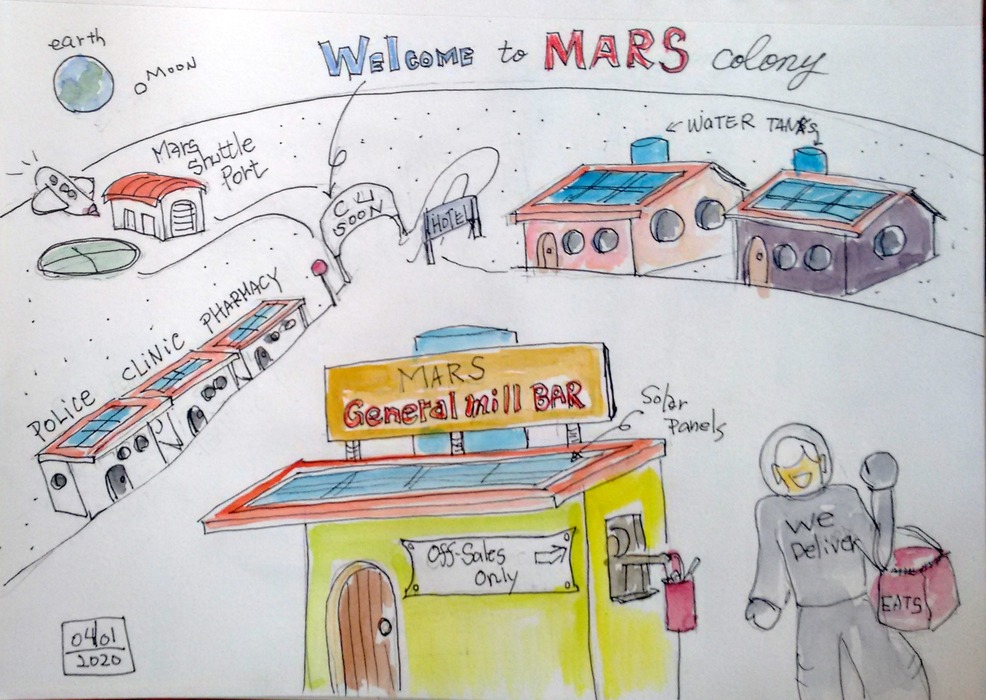 earth
MOON
WELCOME to MARS colony
WATER TANKS
Mars
Shuttle
Port
C U
SOON
HOTEL
POLICE CLINIC PHARMACY
MARS
General mill BAR
Solar
Panels
Off-Sales
Only
We
Deliver
EATS
04/01
2020